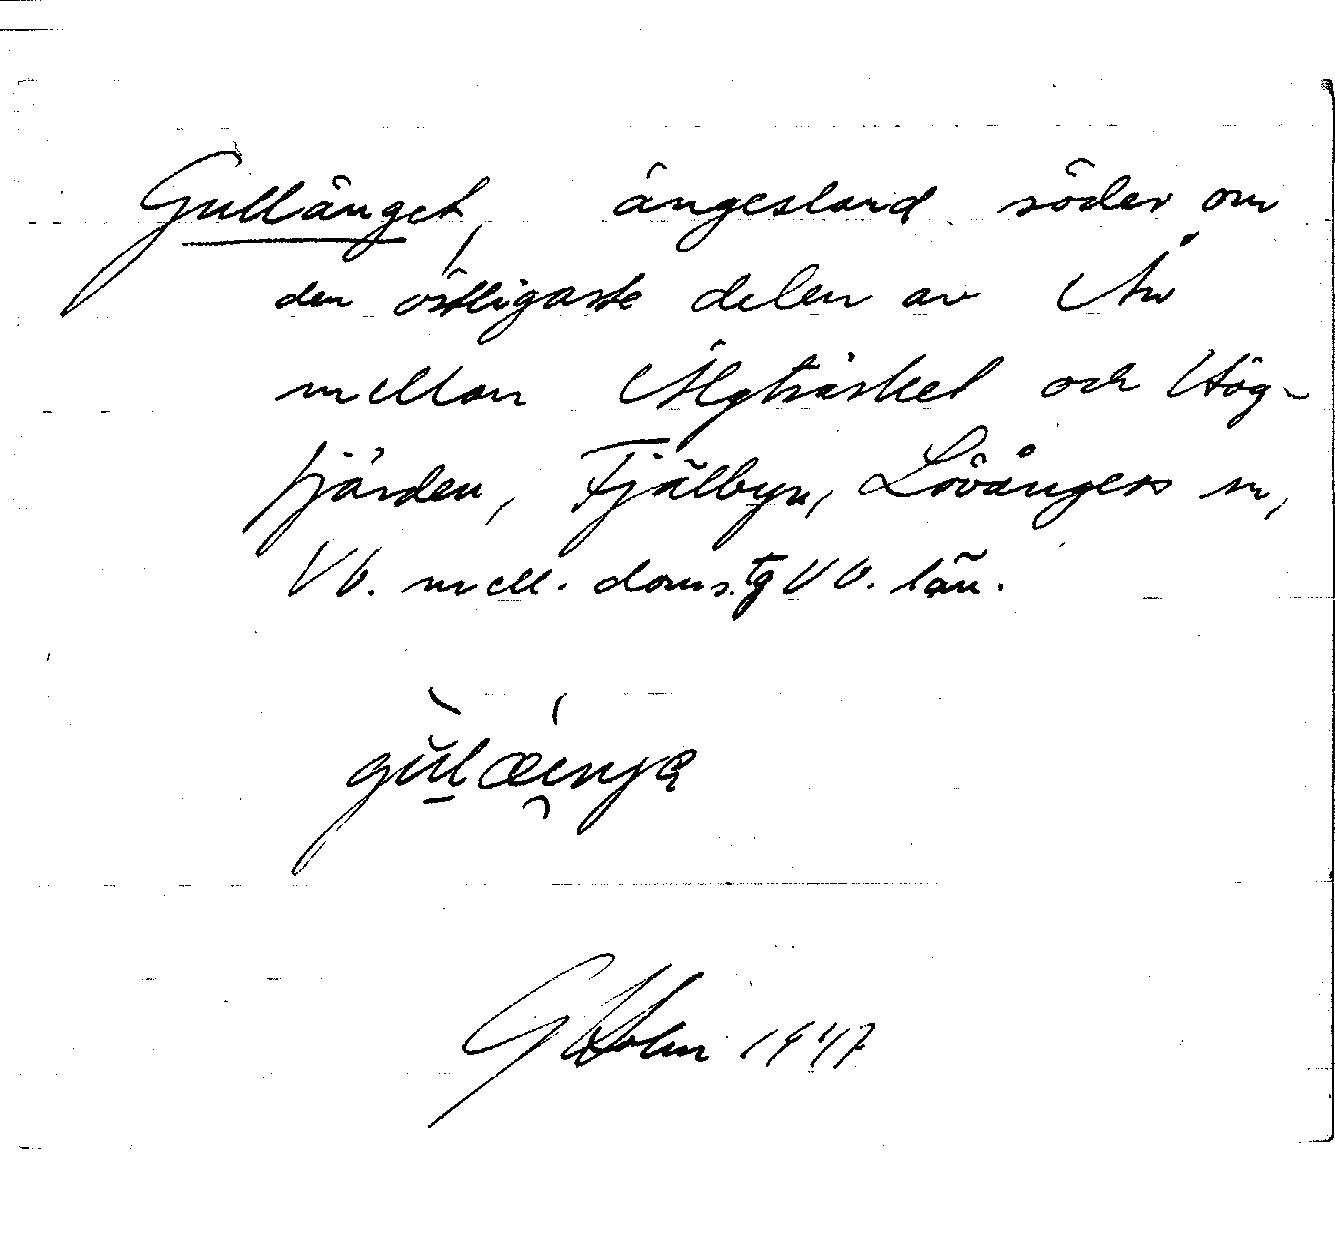 Gullänget, ängesland söder om
den östligaste delen av Ån
mellan Älgträsket och Hög-
fjärden, Fjälbyn, Lövångers sn,
Vb. mell. doms. tg Vb. län.
G Holm 1947